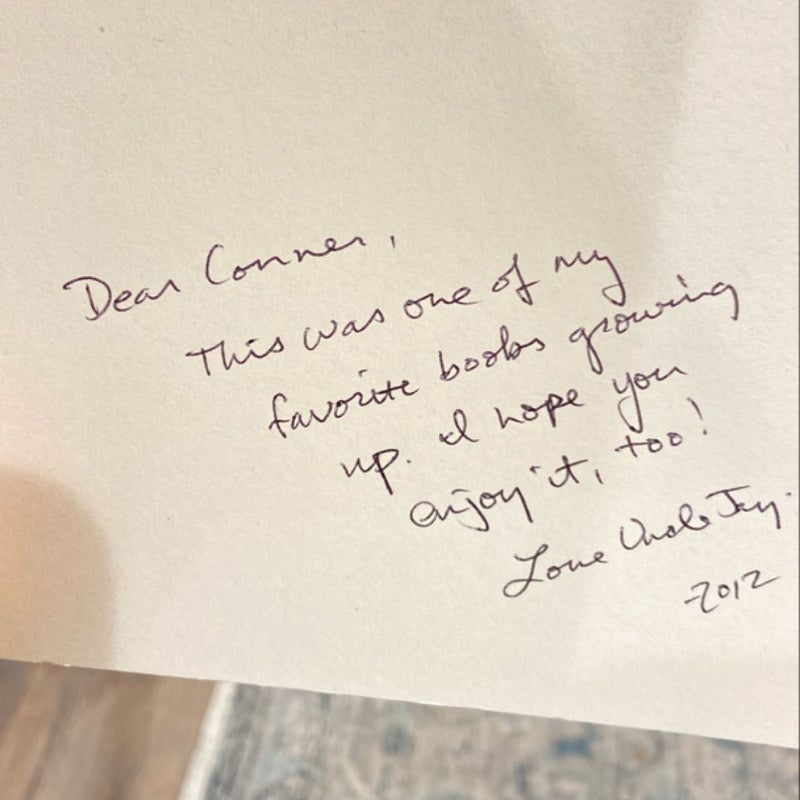 Dear Conner,
This was one of my
favorite books growing
up. I hope you
enjoy it, too!
Love Uncle Jay.
-2012